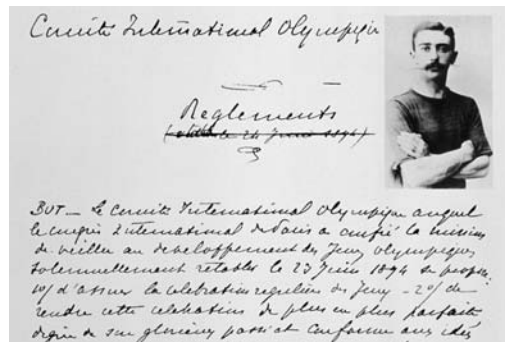 Comité International Olympique
Règlements
le 24 Juin 1894)
BUT — Le Comité International Olympique auquel
le congrès International de Paris a confié la mission
de veiller au développement des Jeux Olympiques
solennellement rétablis le 23 Juin 1894 se propose:
1o/ d'assurer la célébration régulière des Jeux – 2o/ de
rendre cette célébration de plus en plus parfaite
digne de son glorieux passé et conforme aux idées